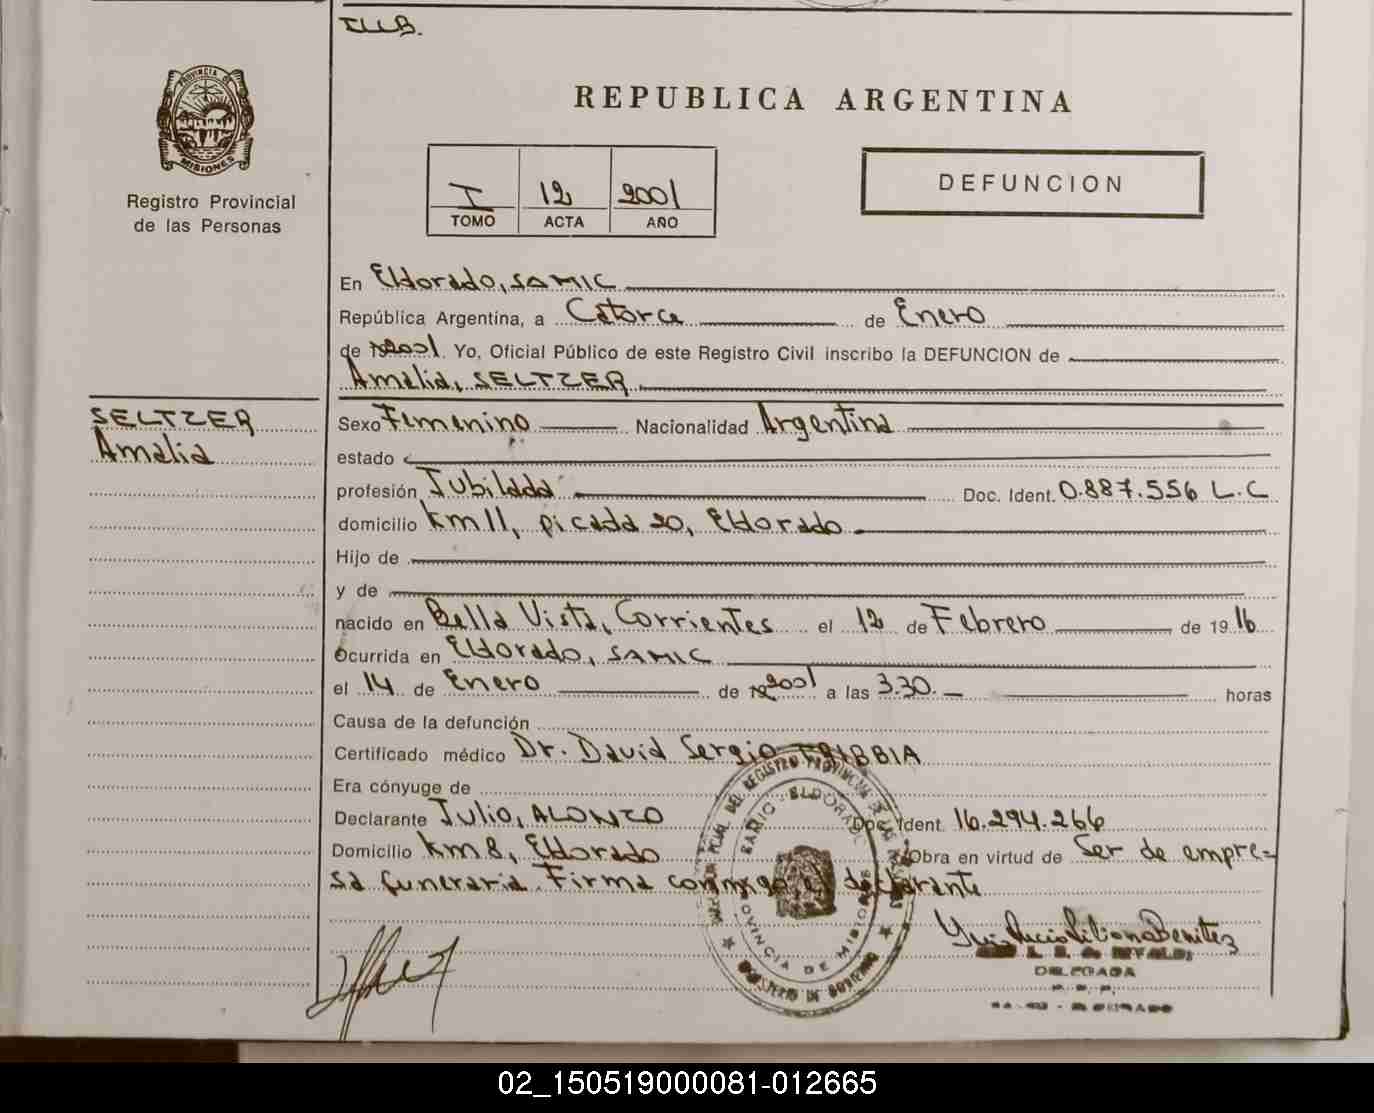 ILLB.
PROVINCIA DE
MISIONES
Registro Provincial
de las Personas
REPUBLICA ARGENTINA
I 12 2001
TOMO ACTA AÑO
DEFUNCION
En Eldorado, SAMIC
República Argentina, a Catorce de Enero
de 2001. Yo, Oficial Público de este Registro Civil inscribo la DEFUNCION de
Amalia, SELTZER
SELTZER
Amalia
Sexo Femenino Nacionalidad Argentina
estado
profesión Jubilada Doc. Ident. 0.887.556 L.C
domicilio Km 11, picada 20, Eldorado
Hijo de
y de
nacido en Bella Vista, Corrientes el 12 de Febrero de 1916
Ocurrida en Eldorado, SAMIC
el 14 de Enero de 2001 a las 3.30. horas
Causa de la defunción
Certificado médico Dr. David Sergio TRIBBIA
Era cónyuge de
Declarante Julio, ALONZO Doc. Ident. 16.294.266
Domicilio Km 8, Eldorado Obra en virtud de Ser de empre-
sa funeraria. Firma conmigo el declarante
SAMIC - ELDORADO
PROVINCIA DE MISIONES
MINISTERIO DE GOBIERNO
Lucia Liliana Benitez
DELEGADA
R. P. P.
SAMIC - ELDORADO
02_150519000081-012665